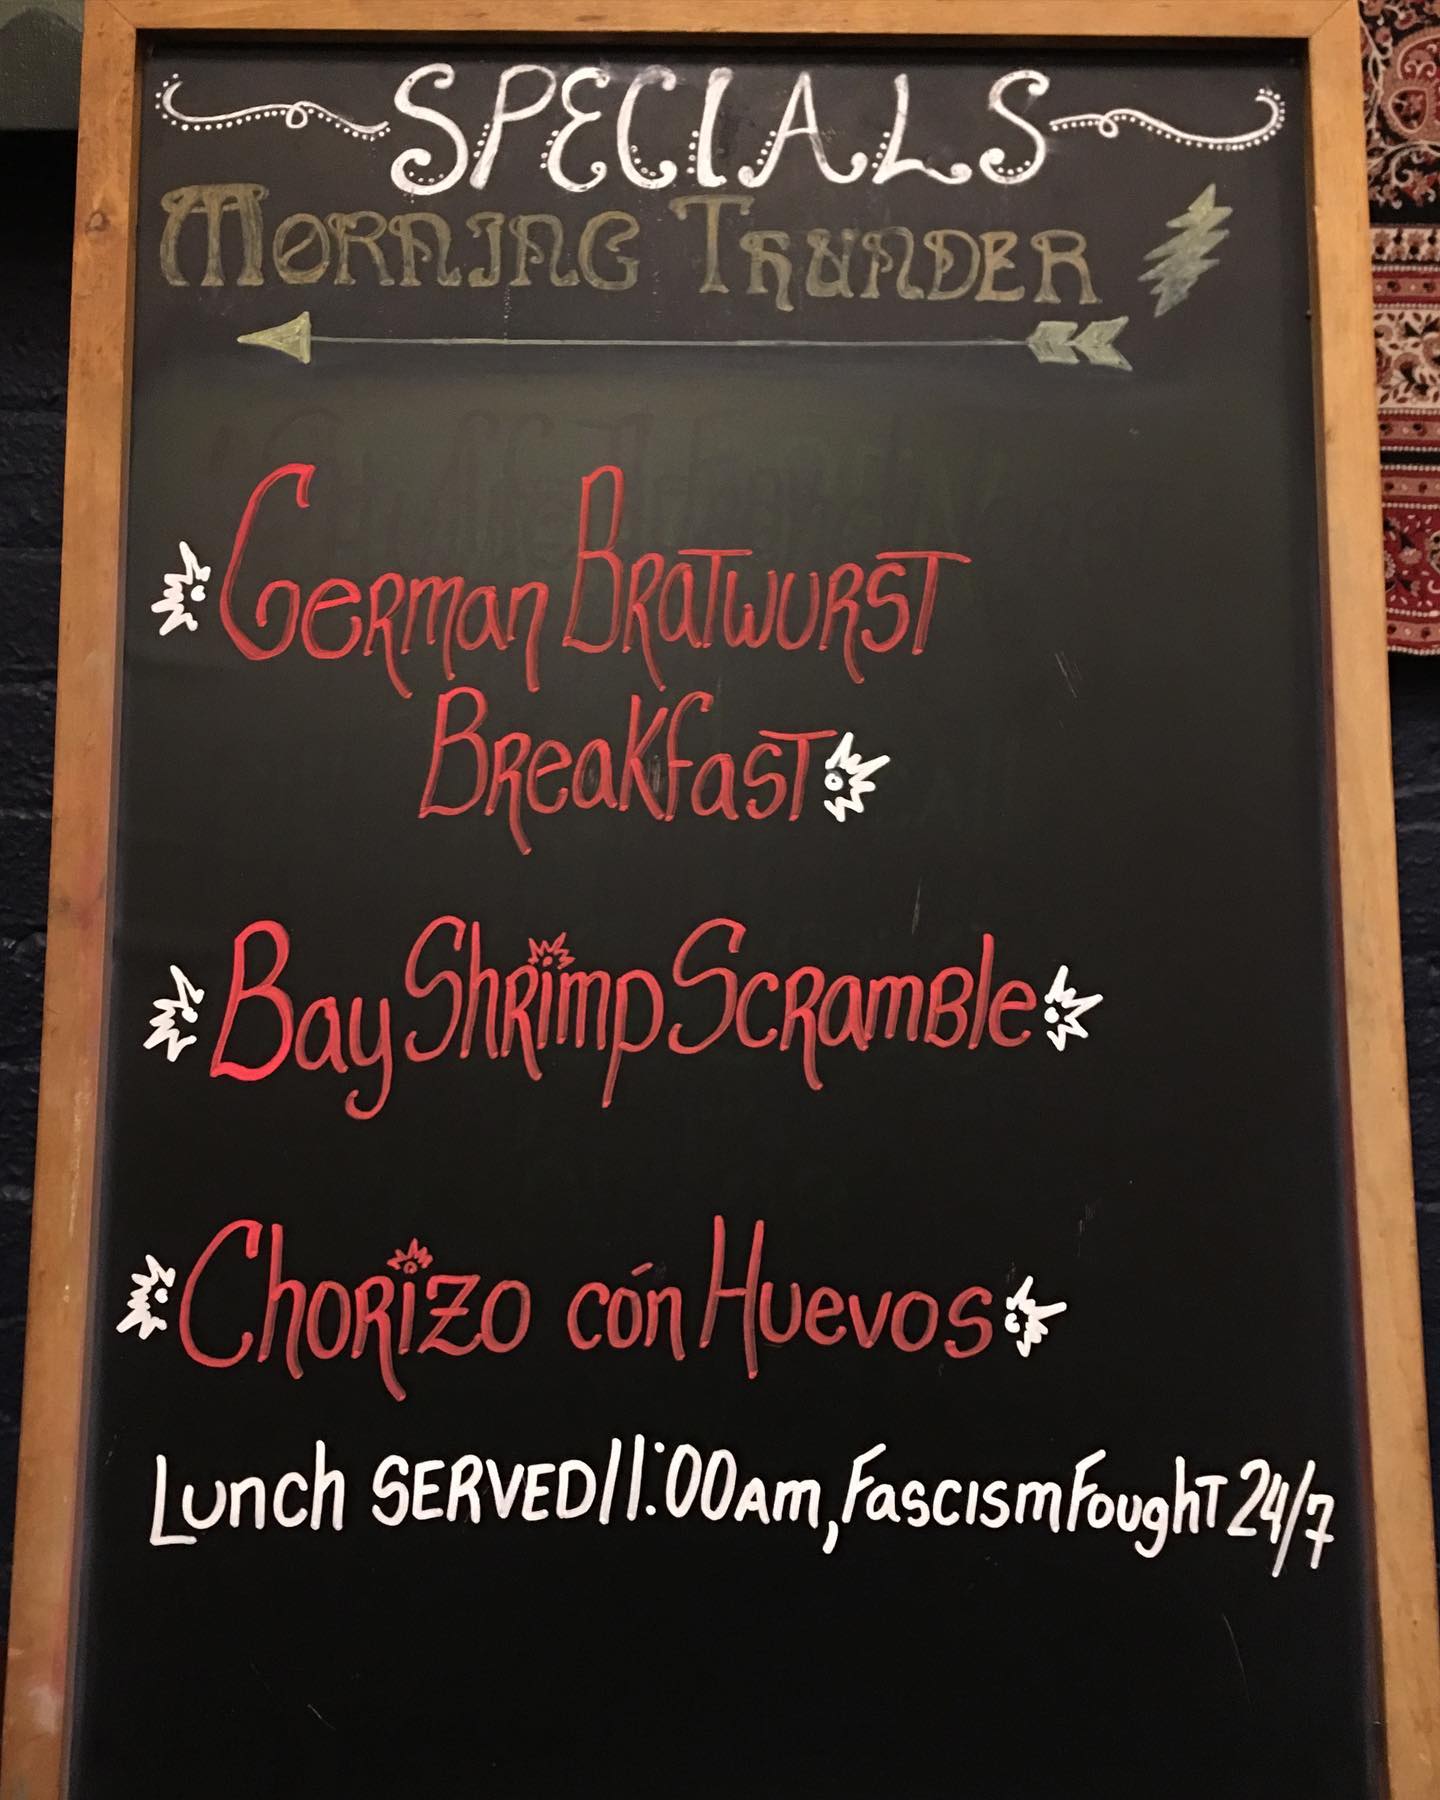 SPECIALS
MORNING THUNDER
German Bratwurst
Breakfast
Bay Shrimp Scramble
Chorizo cón Huevos
Lunch SERVED 11:00am, Fascism Fought 24/7